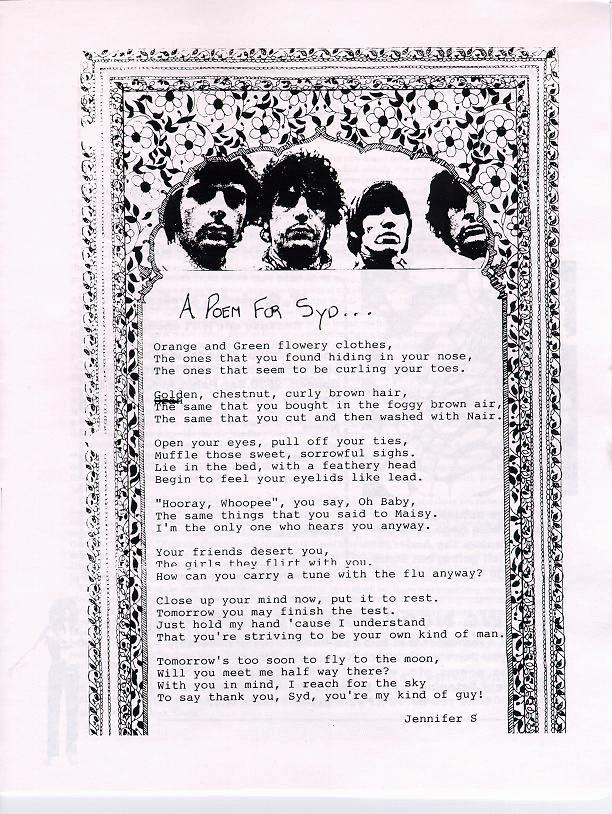 A Poem For Syd...
Orange and Green flowery clothes,
The ones that you found hiding in your nose,
The ones that seem to be curling your toes.
Golden, chestnut, curly brown hair,
The same that you bought in the foggy brown air,
The same that you cut and then washed with Nair.
Open your eyes, pull off your ties,
Muffle those sweet, sorrowful sighs.
Lie in the bed, with a feathery head
Begin to feel your eyelids like lead.
"Hooray, Whoopee", you say, Oh Baby,
The same things that you said to Maisy.
I'm the only one who hears you anyway.
Your friends desert you,
The girls they flirt with you.
How can you carry a tune with the flu anyway?
Close up your mind now, put it to rest.
Tomorrow you may finish the test.
Just hold my hand 'cause I understand
That you're striving to be your own kind of man.
Tomorrow's too soon to fly to the moon,
Will you meet me half way there?
With you in mind, I reach for the sky
To say thank you, Syd, you're my kind of guy!
Jennifer S